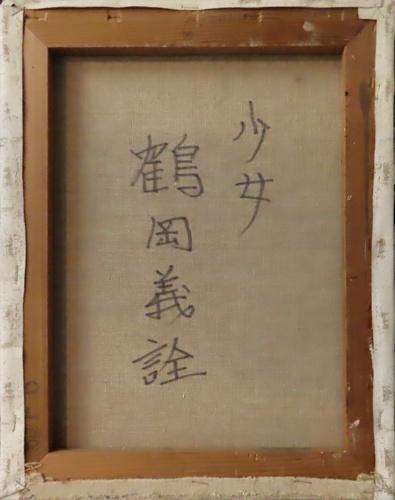 少女
鶴岡義詮